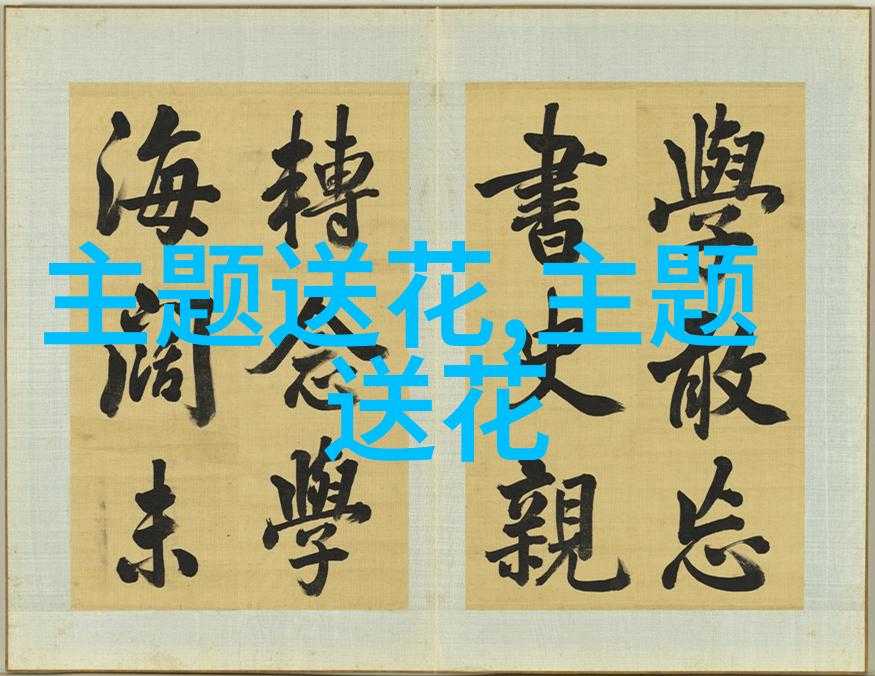 學敢忘
書史親
轉念學
海闊未
主题送花,主题
送花